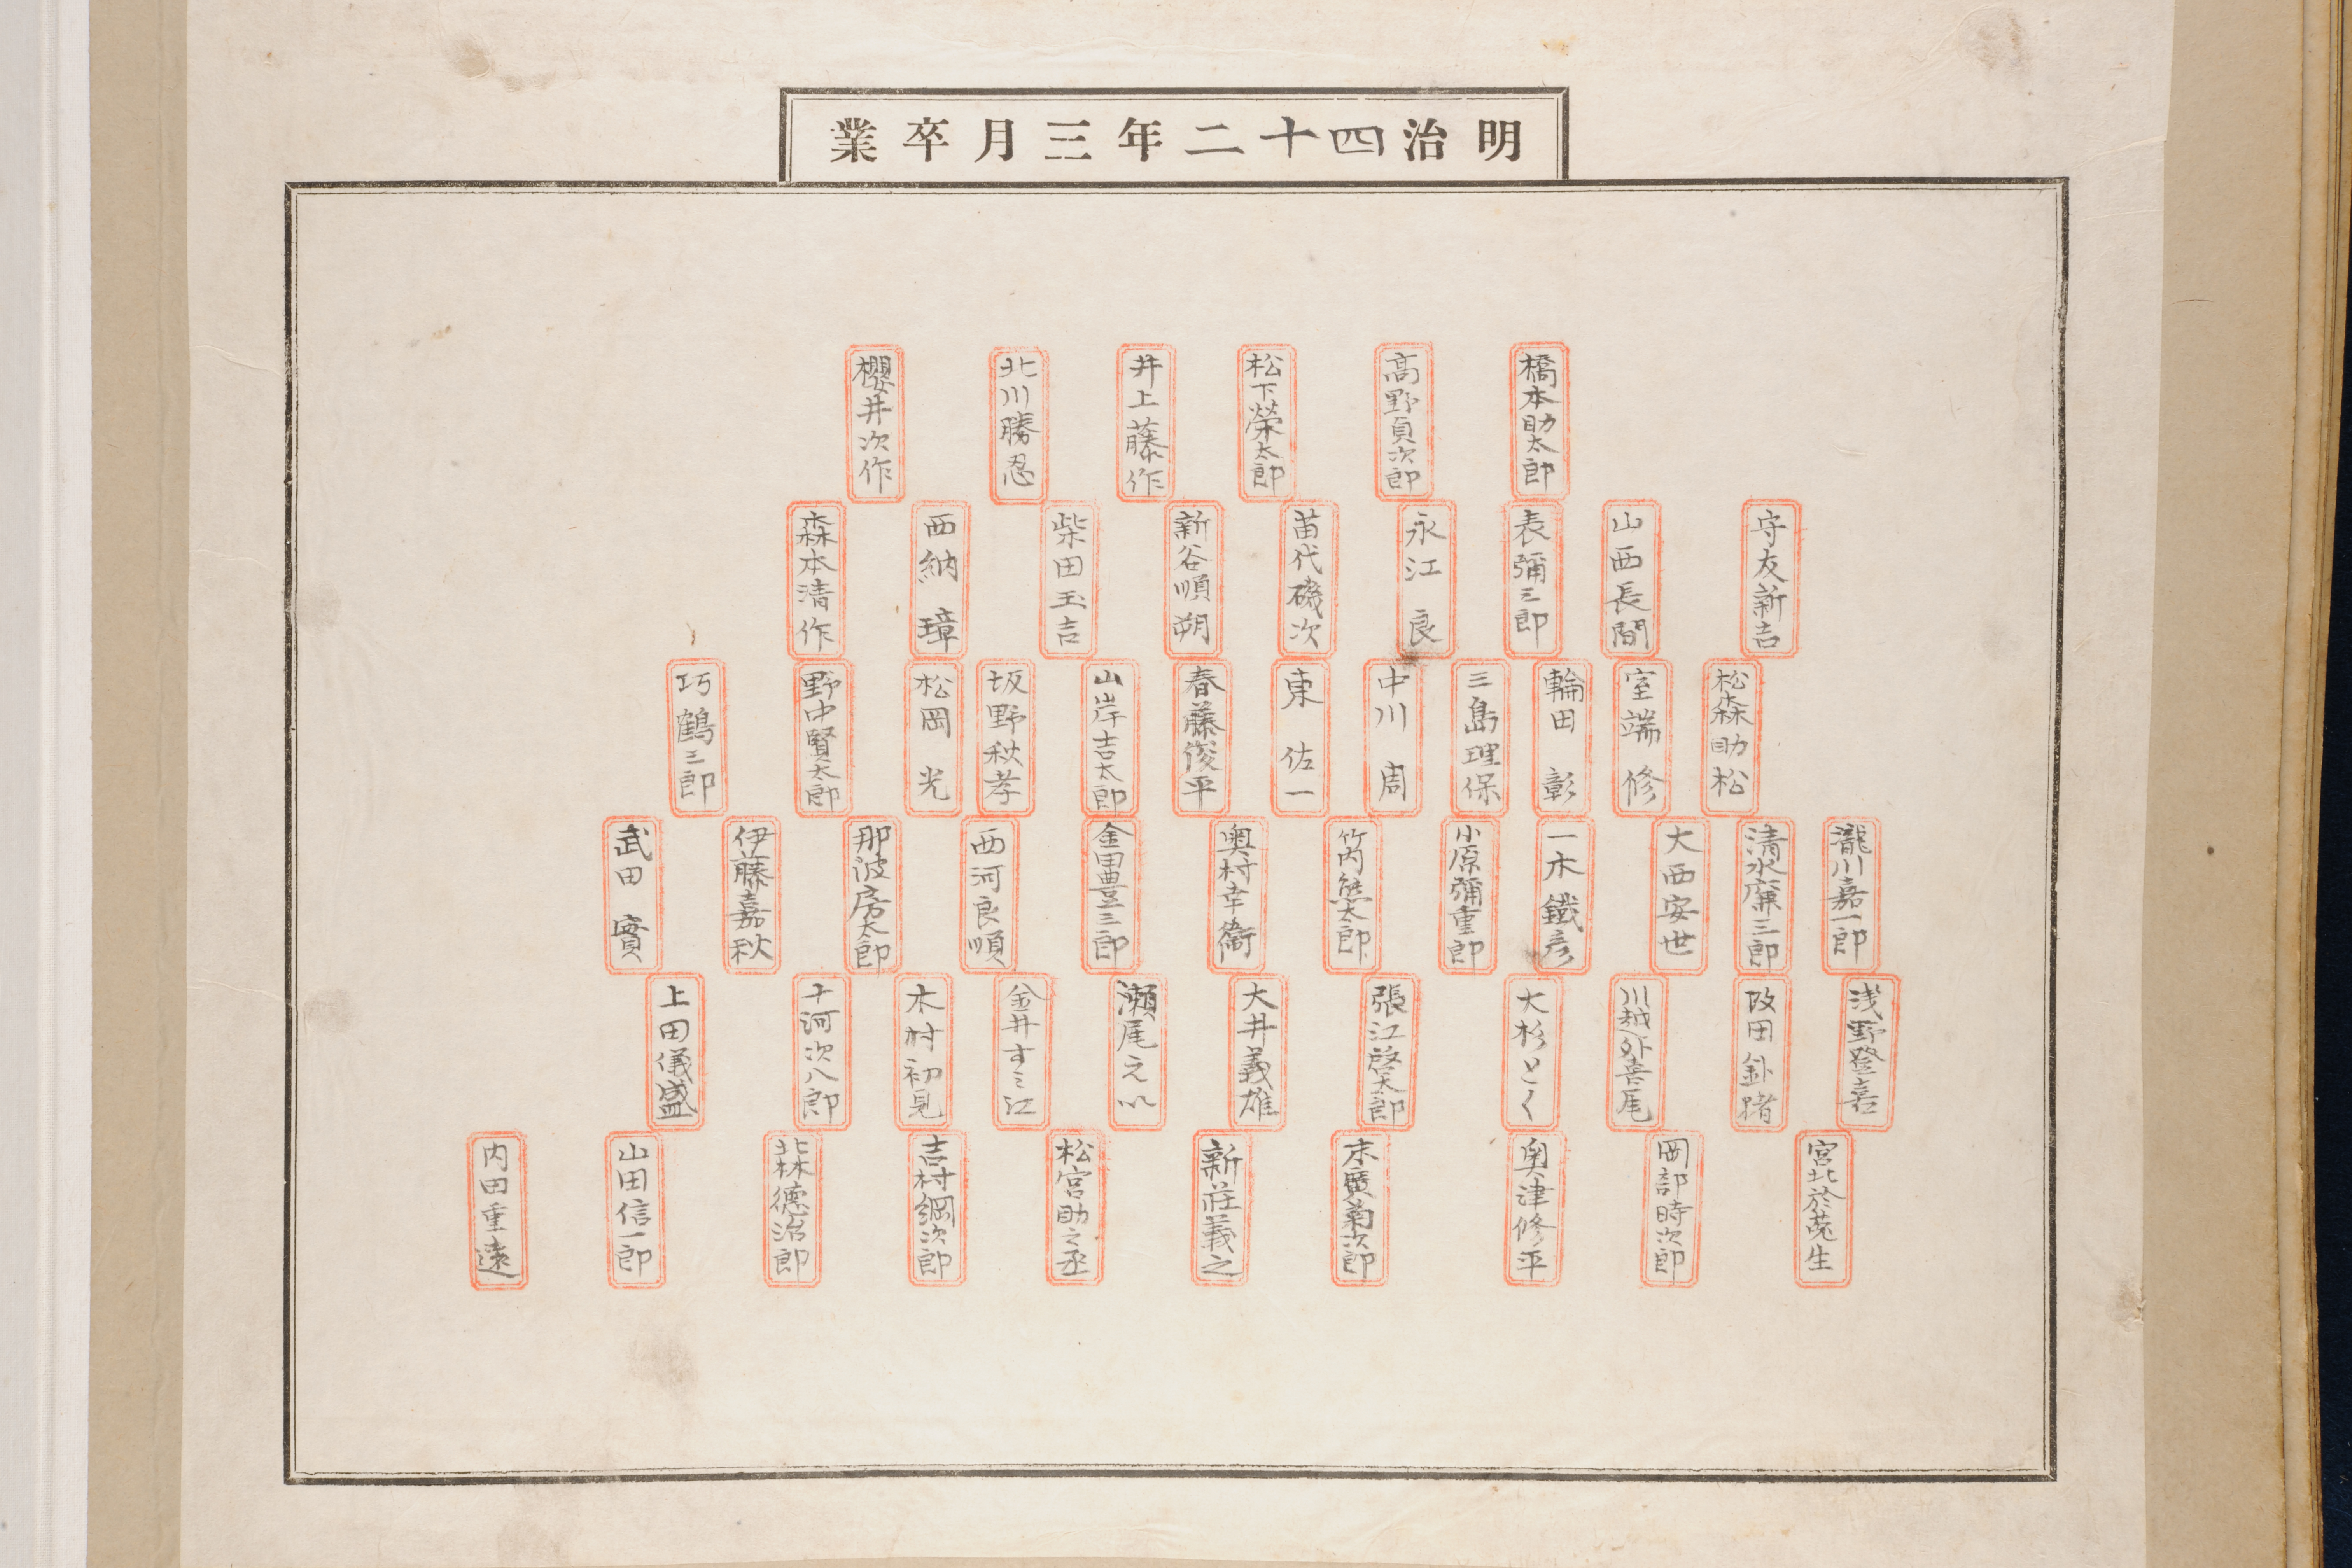 明治四十二年三月卒業
橋本助太郎
高野貞次郎
松下榮太郎
井上藤作
北川勝忍
櫻井次作
守友新吉
山西長間
表彌三郎
永江良
苗代磯次
新谷順朔
柴田玉吉
西納璋
森本清作
松森助松
室端修
輪田彰
三島理保
中川周
東佐一
春藤俊平
山岸吉太郎
坂野秋孝
松岡光
野中賢太郎
巧鶴三郎
瀧川嘉一郎
清水廉三郎
大西安世
一木鐵彦
小原彌重郎
竹内熊太郎
奥村幸衞
金田豊三郎
西河良順
那波房太郎
伊藤嘉秋
武田實
浅野登喜
田
川越外喜尾
大杉とく
張江啓太郎
大井義雄
瀬尾えい
金井すミ江
木村初見
十河次八郎
上田儀盛
宮北於菟生
岡部時次郎
奥津修平
末廣菊次郎
新莊義之
松宮助之丞
吉村綱次郎
北林徳治郎
山田信一郎
内田重遠